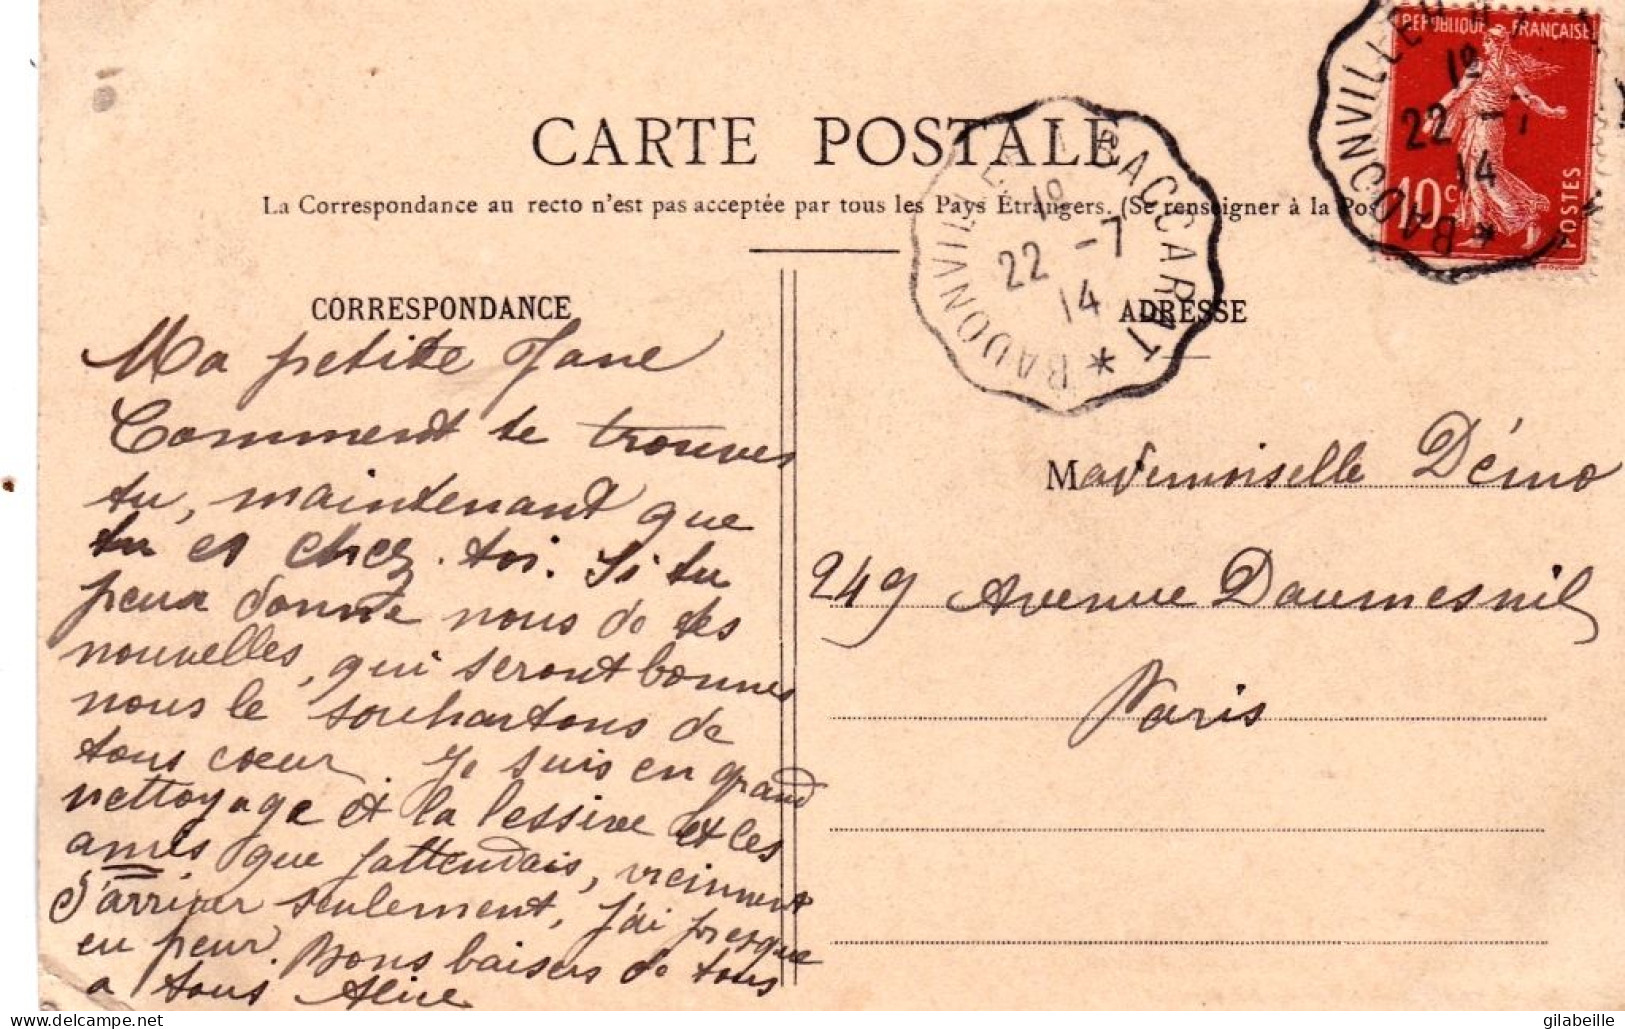 CARTE POSTALE
La Correspondance au recto n'est pas acceptée par tous les Pays Étrangers. (Se renseigner à la Pos
CORRESPONDANCE
Ma petite Jane
Comment te trouves
tu, maintenant que
tu es chez toi. Si tu
peux donne nous de tes
nouvelles, qui seront bonnes
nous le souhaitons de
tous cœur. Je suis en grand
nettoyage et la lessive et les
amis que j'attendais, viennent
d'arriver seulement, j'ai presque
eu peur. Bons baisers de tous
a tous Alice
BADONVILLER A BACCARAT *
22 -7
14
ADRESSE
Mademoiselle Démo
249 Avenue Daumesnil
Paris
REPUBLIQUE FRANÇAISE
10c
POSTES
BADONVILLE
22 -7
14
delcampe.net
gilabeille